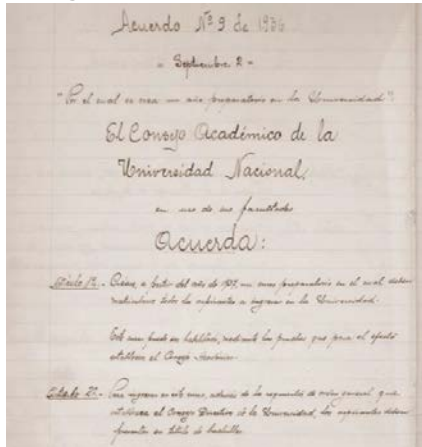 Acuerdo Nº 9 de 1936
- Septiembre 2 -
"Por el cual se crea un año preparatorio en la Universidad".
El Consejo Académico de la
Universidad Nacional,
en uso de sus facultades
Acuerda:
Artículo 1º.- Créase, a partir del año de 1937, un curso preparatorio en el cual deben
matricularse todos los aspirantes a ingresar en la Universidad.
Este curso puede ser habilitado, mediante las pruebas que para el efecto
establezca el Consejo Académico.
Artículo 2º.- Para ingresar en este curso, además de los requisitos de orden general que
establezca el Consejo Directivo de la Universidad, los aspirantes deben
presentar su título de bachiller.